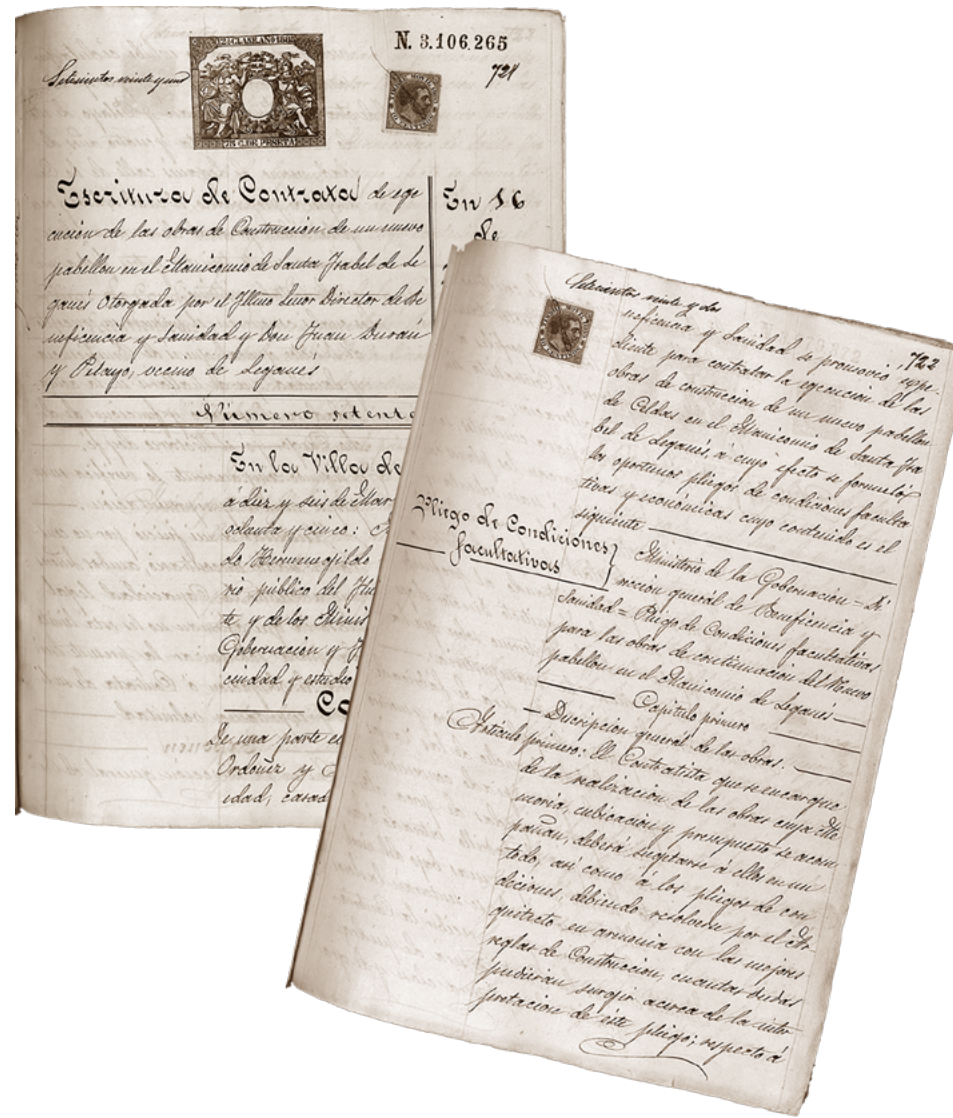 12ª CLASE AÑO 1885
N. 3.106.265
Setecientos veinte y uno
721
75 C. DE PESETA
Escritura de Contrata de ege
cución de las obras de Construccion de un nuevo
pabellon en el Manicomio de Santa Ysabel de Le
ganés Otorgada por el Yllmo Señor Director de Be
neficencia y Sanidad y Don Juan Durán
y Pelayo, vecino de Leganés
En 16
de
Número setenta
En la Villa de
á diez y seis de Mar
ochenta y cinco:
do Hermenegildo
rio público del
te y de los Minis
Gobernacion y
cindad y estudio
Co
De una parte el
Ordoñez y
edad, casad
Setecientos veinte y dos
722
neficencia y Sanidad se promovió espe
diente para contratar la egecucion de las
obras de construccion de un nuevo pabellon
de Celdas en el Manicomio de Santa Ysa
bel de Leganés, á cuyo efecto se formuló
los oportunos pliegos de condiciones faculta
tivas y económicas cuyo contenido es el
siguiente
Pliego de Condiciones
facultativas
Ministerio de la Gobernacion = Di
reccion general de Beneficencia y
Sanidad = Pliego de Condiciones facultativas
para las obras de continuacion del Nuevo
pabellon en el Manicomio de Leganés
Capítulo primero
Descripcion general de las obras.
Artículo primero: El Contratista que se encargue
de la realizacion de las obras cuya Me
moria, cubicacion y presupuesto se acom
pañan, deberá sugetarse á ellos en un
todo, así como á los pliegos de con
diciones, debiendo resolverse por el Ar
quitecto en armonia con las mejores
reglas de Construccion, cuantas dudas
pudieran surgir acerca de la inter
pretacion de este pliego; respecto á